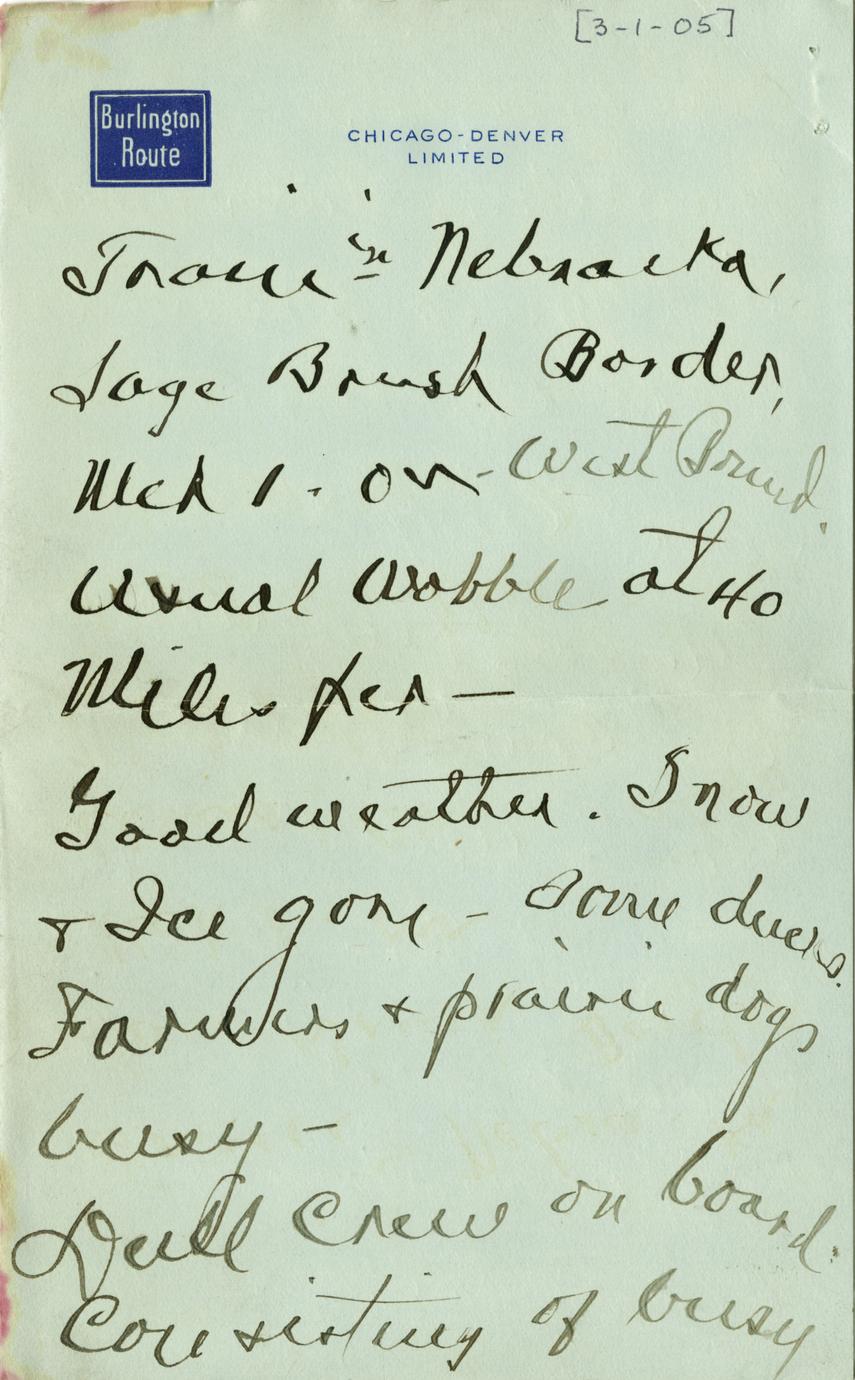 [3-1-05]
Burlington
Route
CHICAGO-DENVER
LIMITED
Train in Nebraska,
Sage Brush Border,
Mch 1. on - West Bound.
Usual Wobble at 40
Miles per —
Good weather. Snow
& Ice gone - Some ducks.
Farmers & prairie dogs
busy -
Dull Crew on board.
Consisting of busy